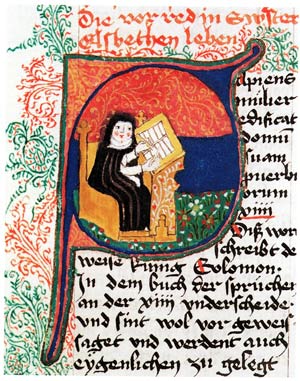 Die vor red in Swöster
Elsbethen leben
Sapiens
mulier
edificat
domū
suam
puerbi
orum
xiiij
Diß wor
schreibt de
weise kunig Solomon.
In dem buch der sprücher
an der xiiij vnderscheide
vnd sint wol vor geweis
saget vnd werdent auch
eygenlichen zu gelegt